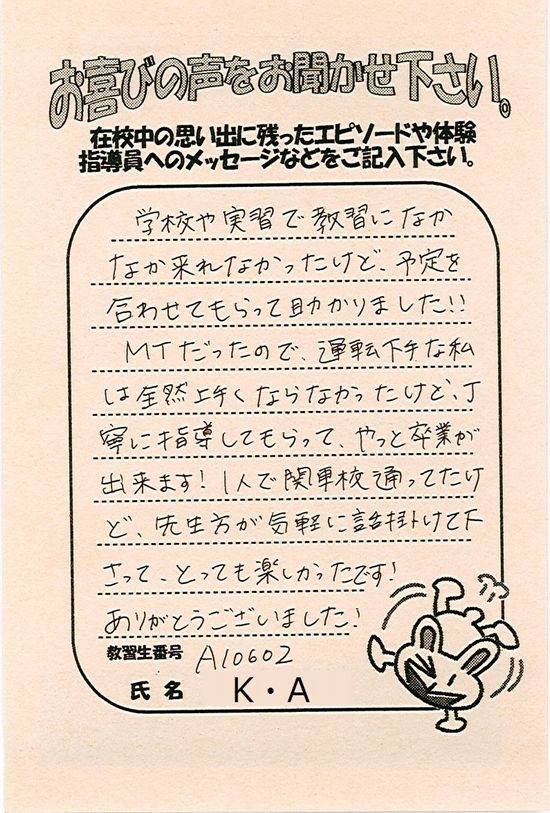 お喜びの声をお聞かせ下さい。
在校中の思い出に残ったエピソードや体験
指導員へのメッセージなどをご記入下さい。
学校や実習で教習になか
なか来れなかったけど、予定を
合わせてもらって助かりました!!
MTだったので、運転下手な私
は全然上手くならなかったけど、丁
寧に指導してもらって、やっと卒業が
出来ます!1人で関自校通ってたけ
ど、先生方が気軽に話掛けて下
さって、とっても楽しかったです!
ありがとうございました!
教習生番号 A10602
氏名 K・A